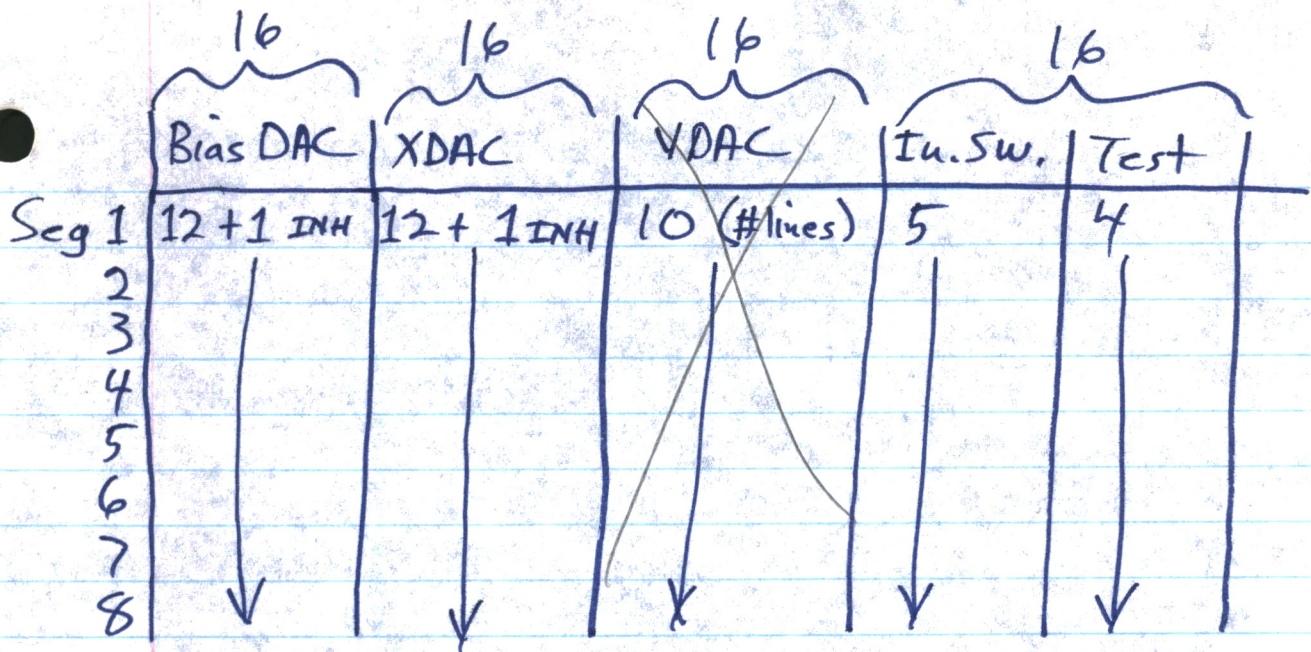 16 16 16 16
Bias DAC XDAC YDAC In. Sw. Test
Seg 1 12 + 1 INH 12 + 1 INH 10 (#lines) 5 4
2
3
4
5
6
7
8